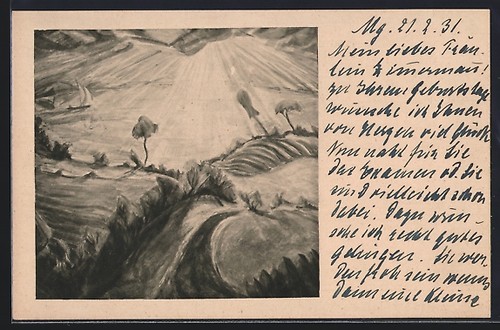 Mg. 21.2.31.
Mein liebes Fräu-
lein Zimmermann!
zu Ihrem Geburtstage
wünsche ich Ihnen
von Herzen viel Glück
Nun naht für Sie
das Examen od. Sie
sind vielleicht schon
dabei. Dazu wün-
sche ich recht gutes
gelingen. Sie wer
den froh sein wenn
dann eine kleine